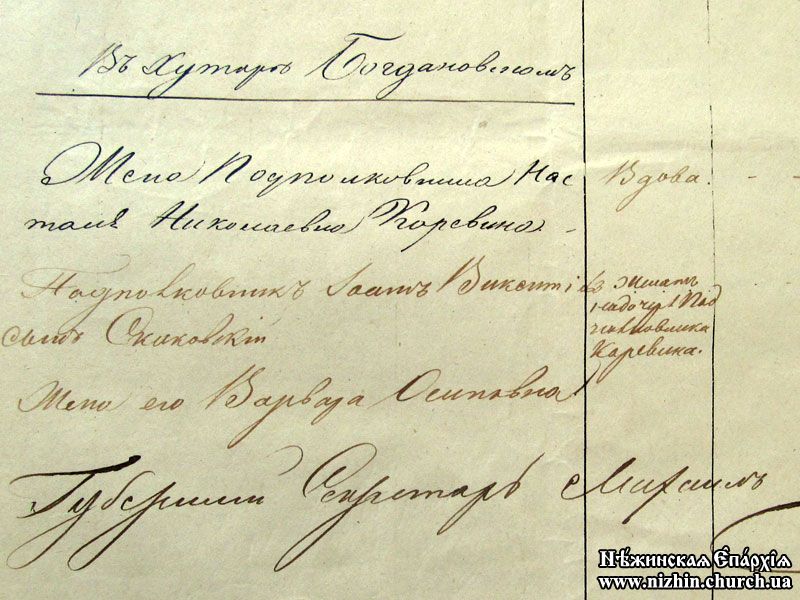 Въ Хуторѣ Богдановскомъ
Жена Подполковника Нас
талія Николаевна Каревина
Вдова.
Подполковникъ Іоанъ Викенті
сынъ Скаковскій
женатъ
на дочерѣ Под
полковника
Каревина.
Жена его Варвара Осиповна
Губернскій Секретарь Михаилъ
Нѣжинская Епархія
www.nizhin.church.ua